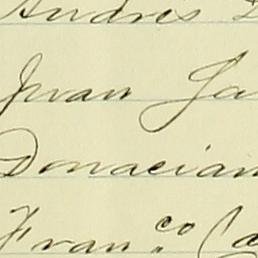 Andres
Juan
Donacian
Fran.co